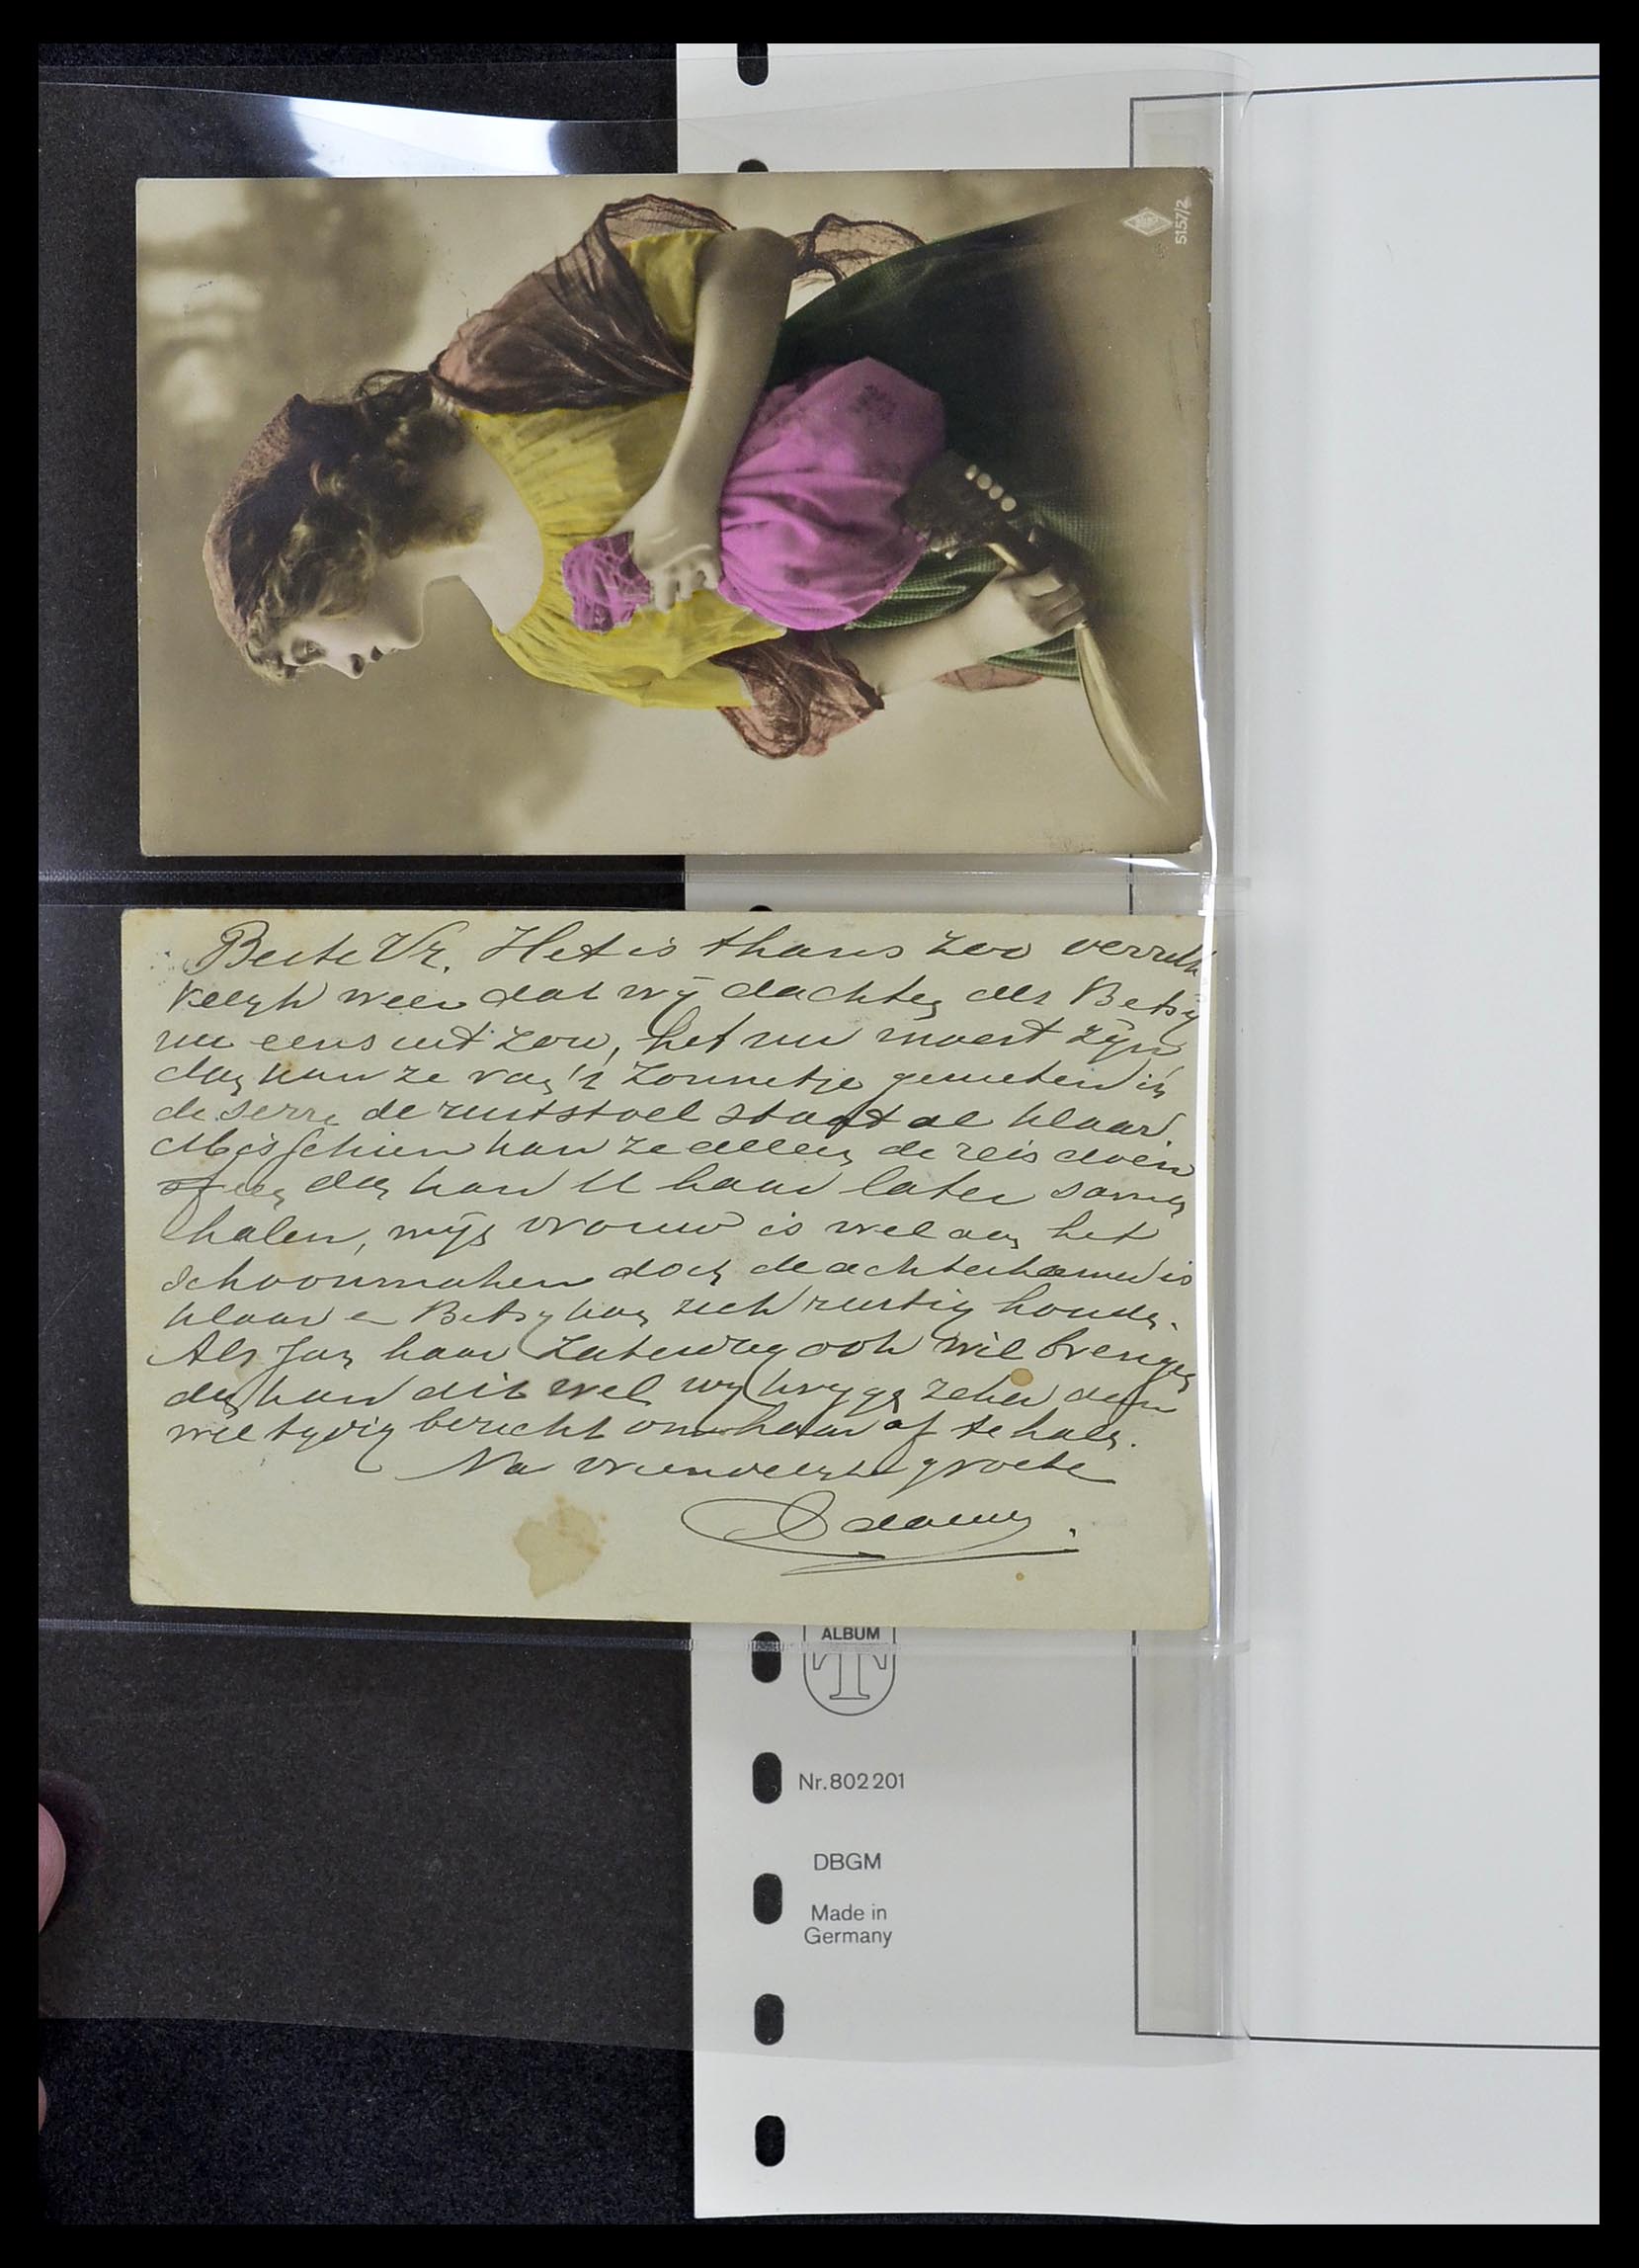 5157/2
Beste Vr. Het is thans zoo verruk
kelijk weer dat wij dachten als Betsy
nu eens uit zou, het nu moest zijn
dan kan ze van 't zonnetje genieten in
de serre de ruststoel staat al klaar.
Misschien kan ze alleen de reis doen
en dan kan U haar later samen
halen, mijn vrouw is wel aan het
schoonmaken doch de achterkamer is
klaar en Betsy kan zich rustig houden.
Als Jan haar Zaterdag ook wil brengen
dan kan dit wel wij krijgen zeker dan
wel tijdig bericht om haar af te halen.
Na vriendelijke groete
ALBUM
T
Nr. 802 201
DBGM
Made in
Germany